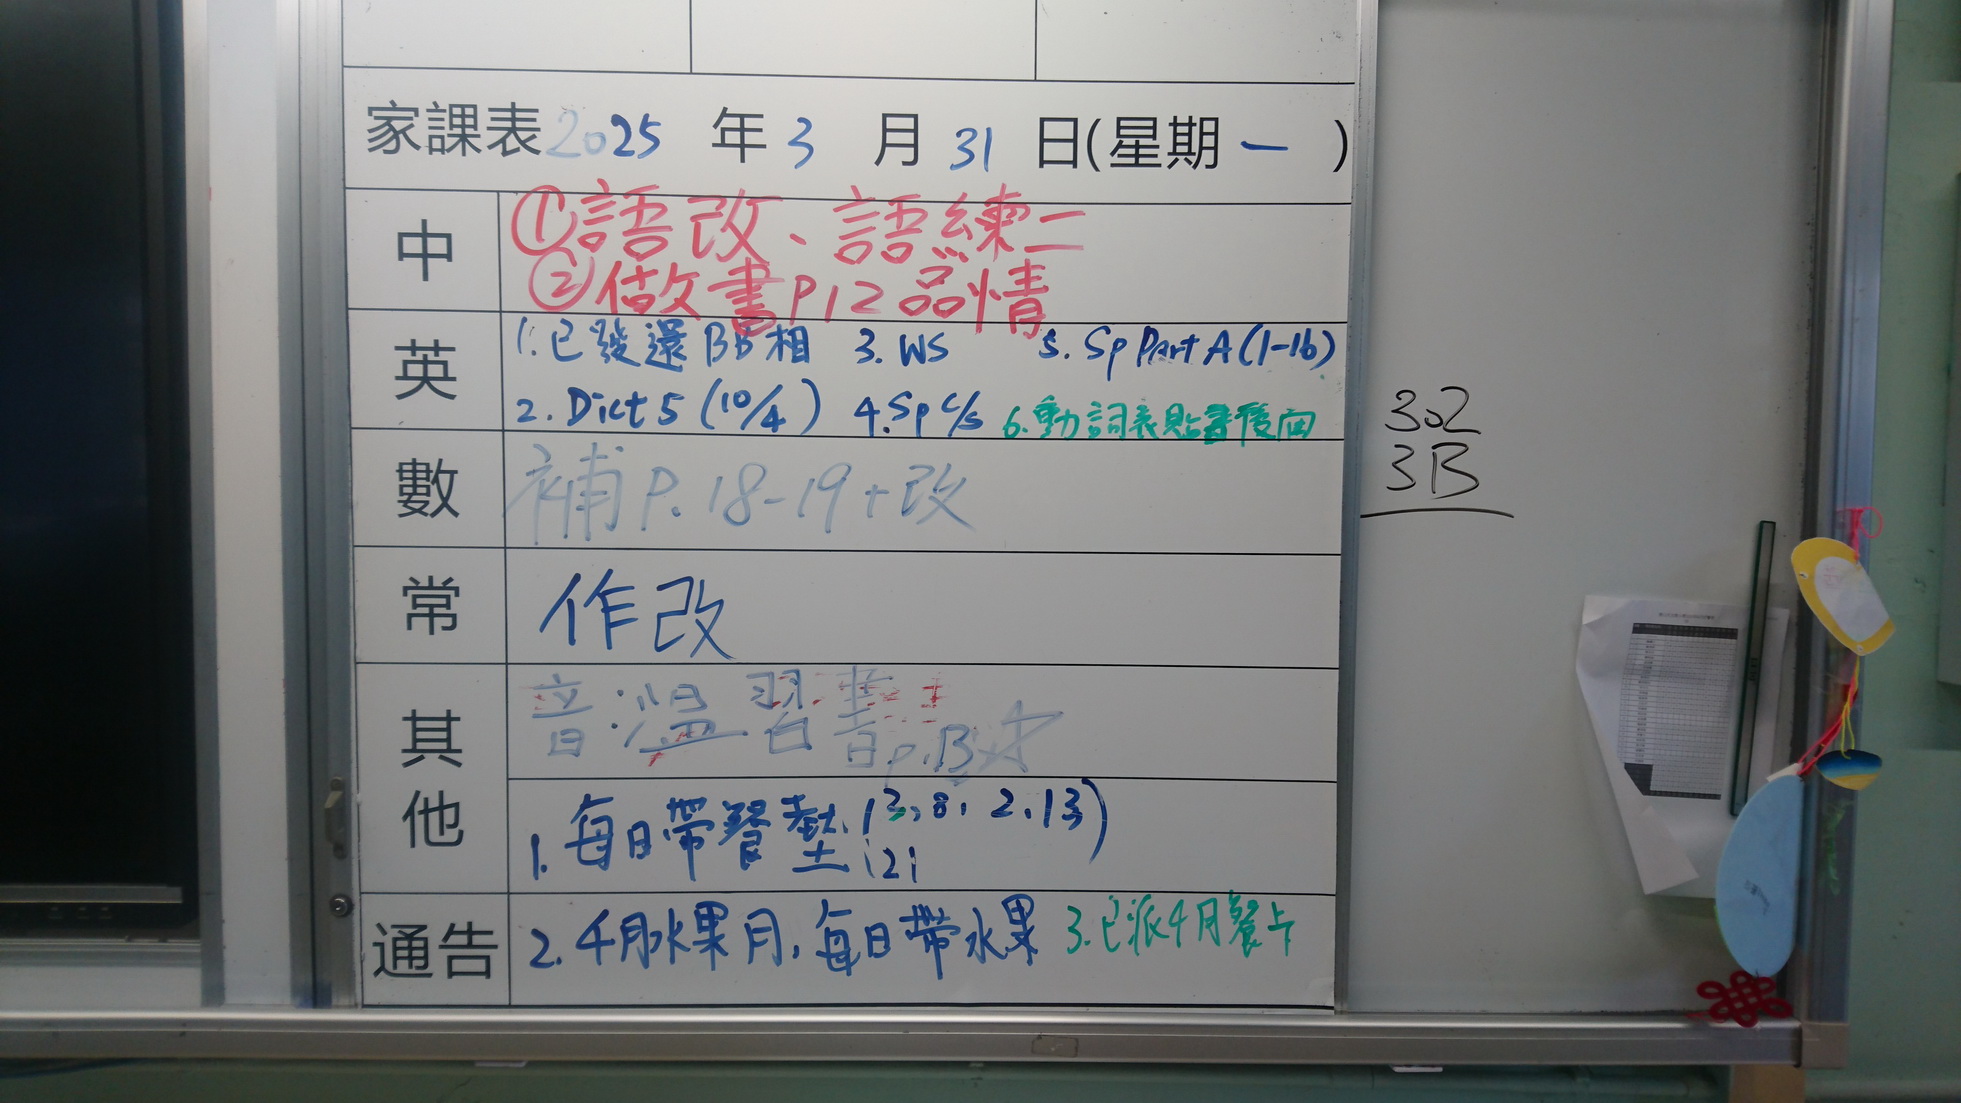 家課表 2025 年 3 月 31 日(星期 一 )
中
①語改、語練二
②做書P12品情
英
1.已發還BB相 3. WS 5. Sp Part A (1-16)
2. Dict 5 (10/4) 4. Sp c/s 6.動詞表貼書後面
數
補P.18-19+改
常
作改
其他
音:溫習書P.B
1. 每日帶餐墊 (3, 8, 2, 13)
121
通告
2. 4月水果月,每日帶水果 3.已派4月餐卡
302
3B